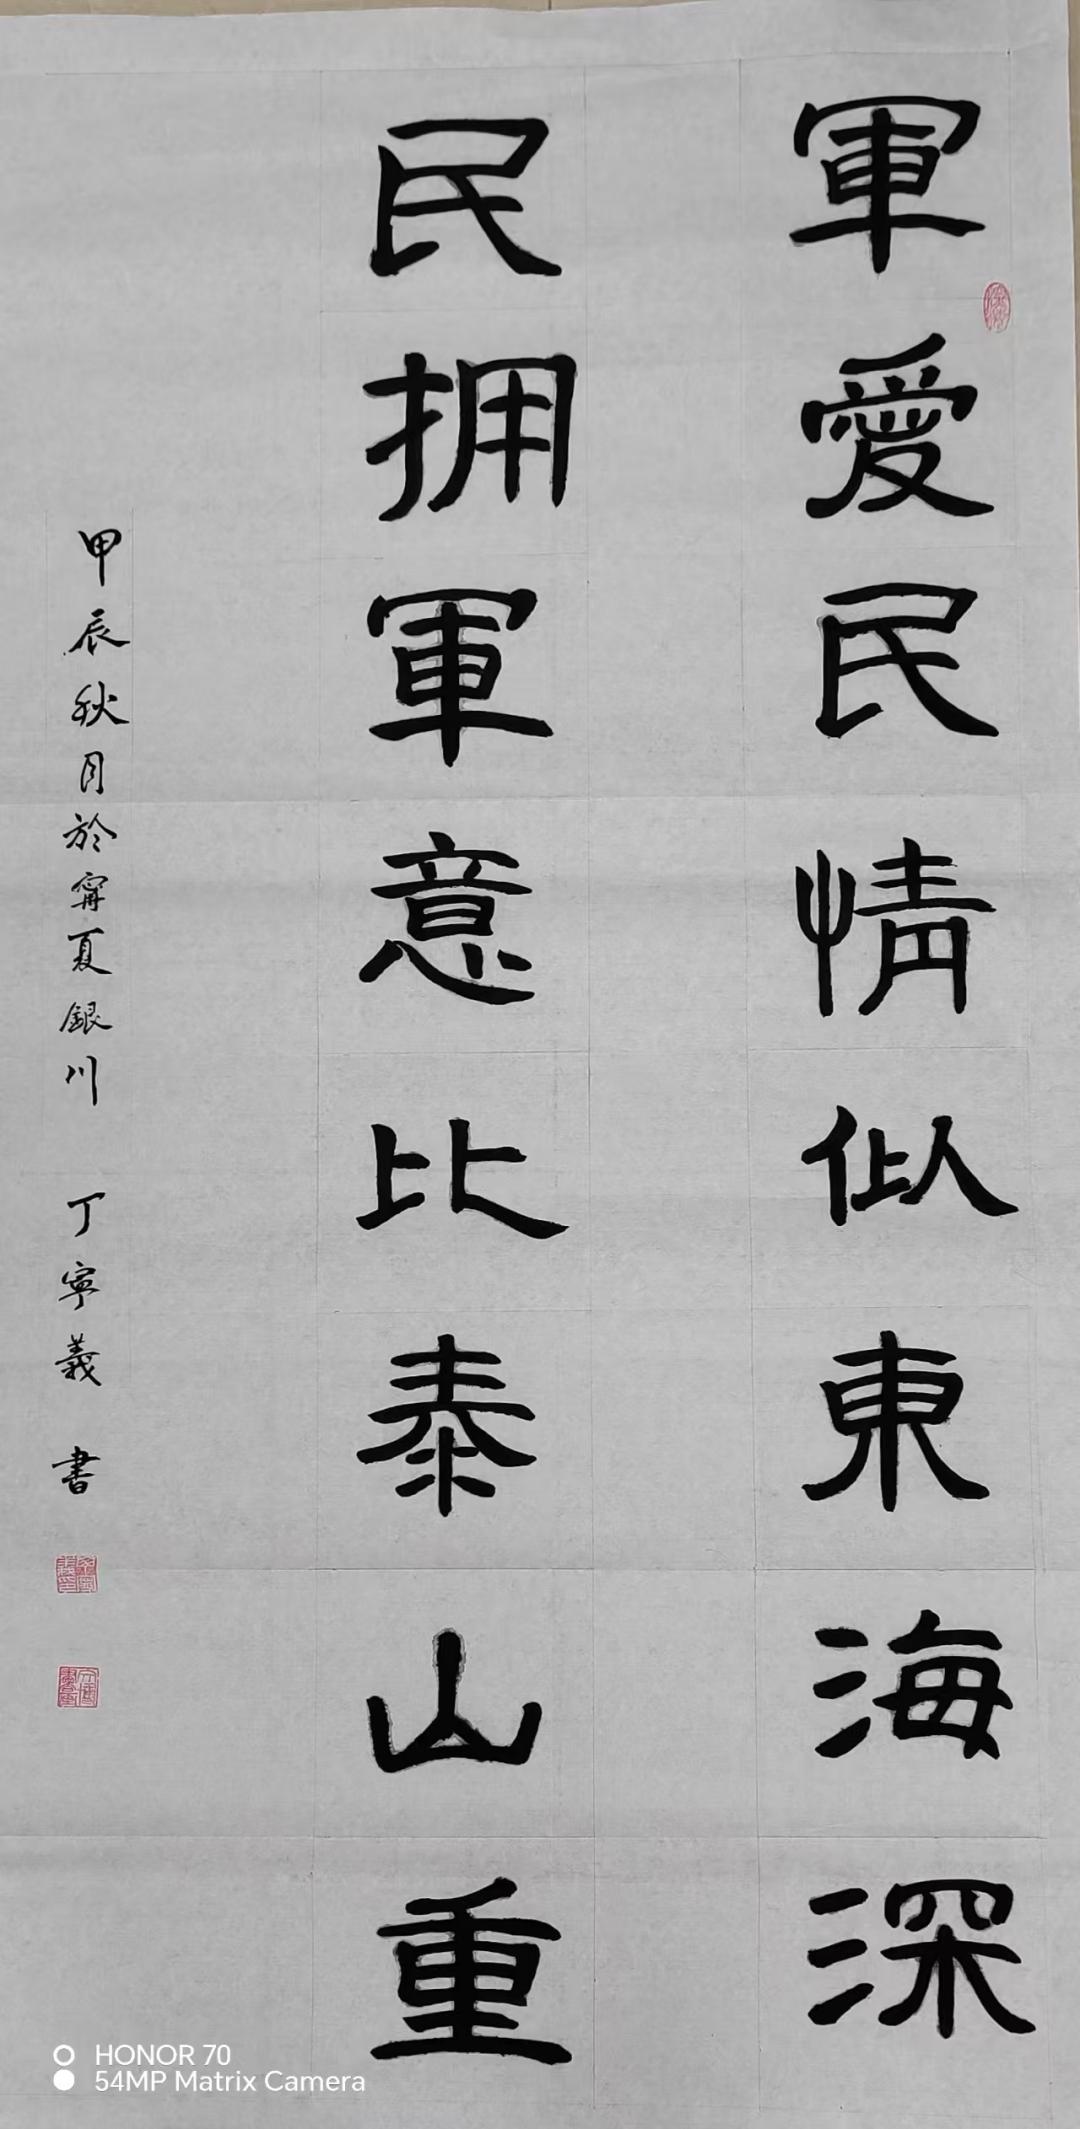 軍愛民情似東海深
民拥軍意比泰山重
甲辰秋月於甯夏銀川 丁寧義 書
HONOR 70
54MP Matrix Camera